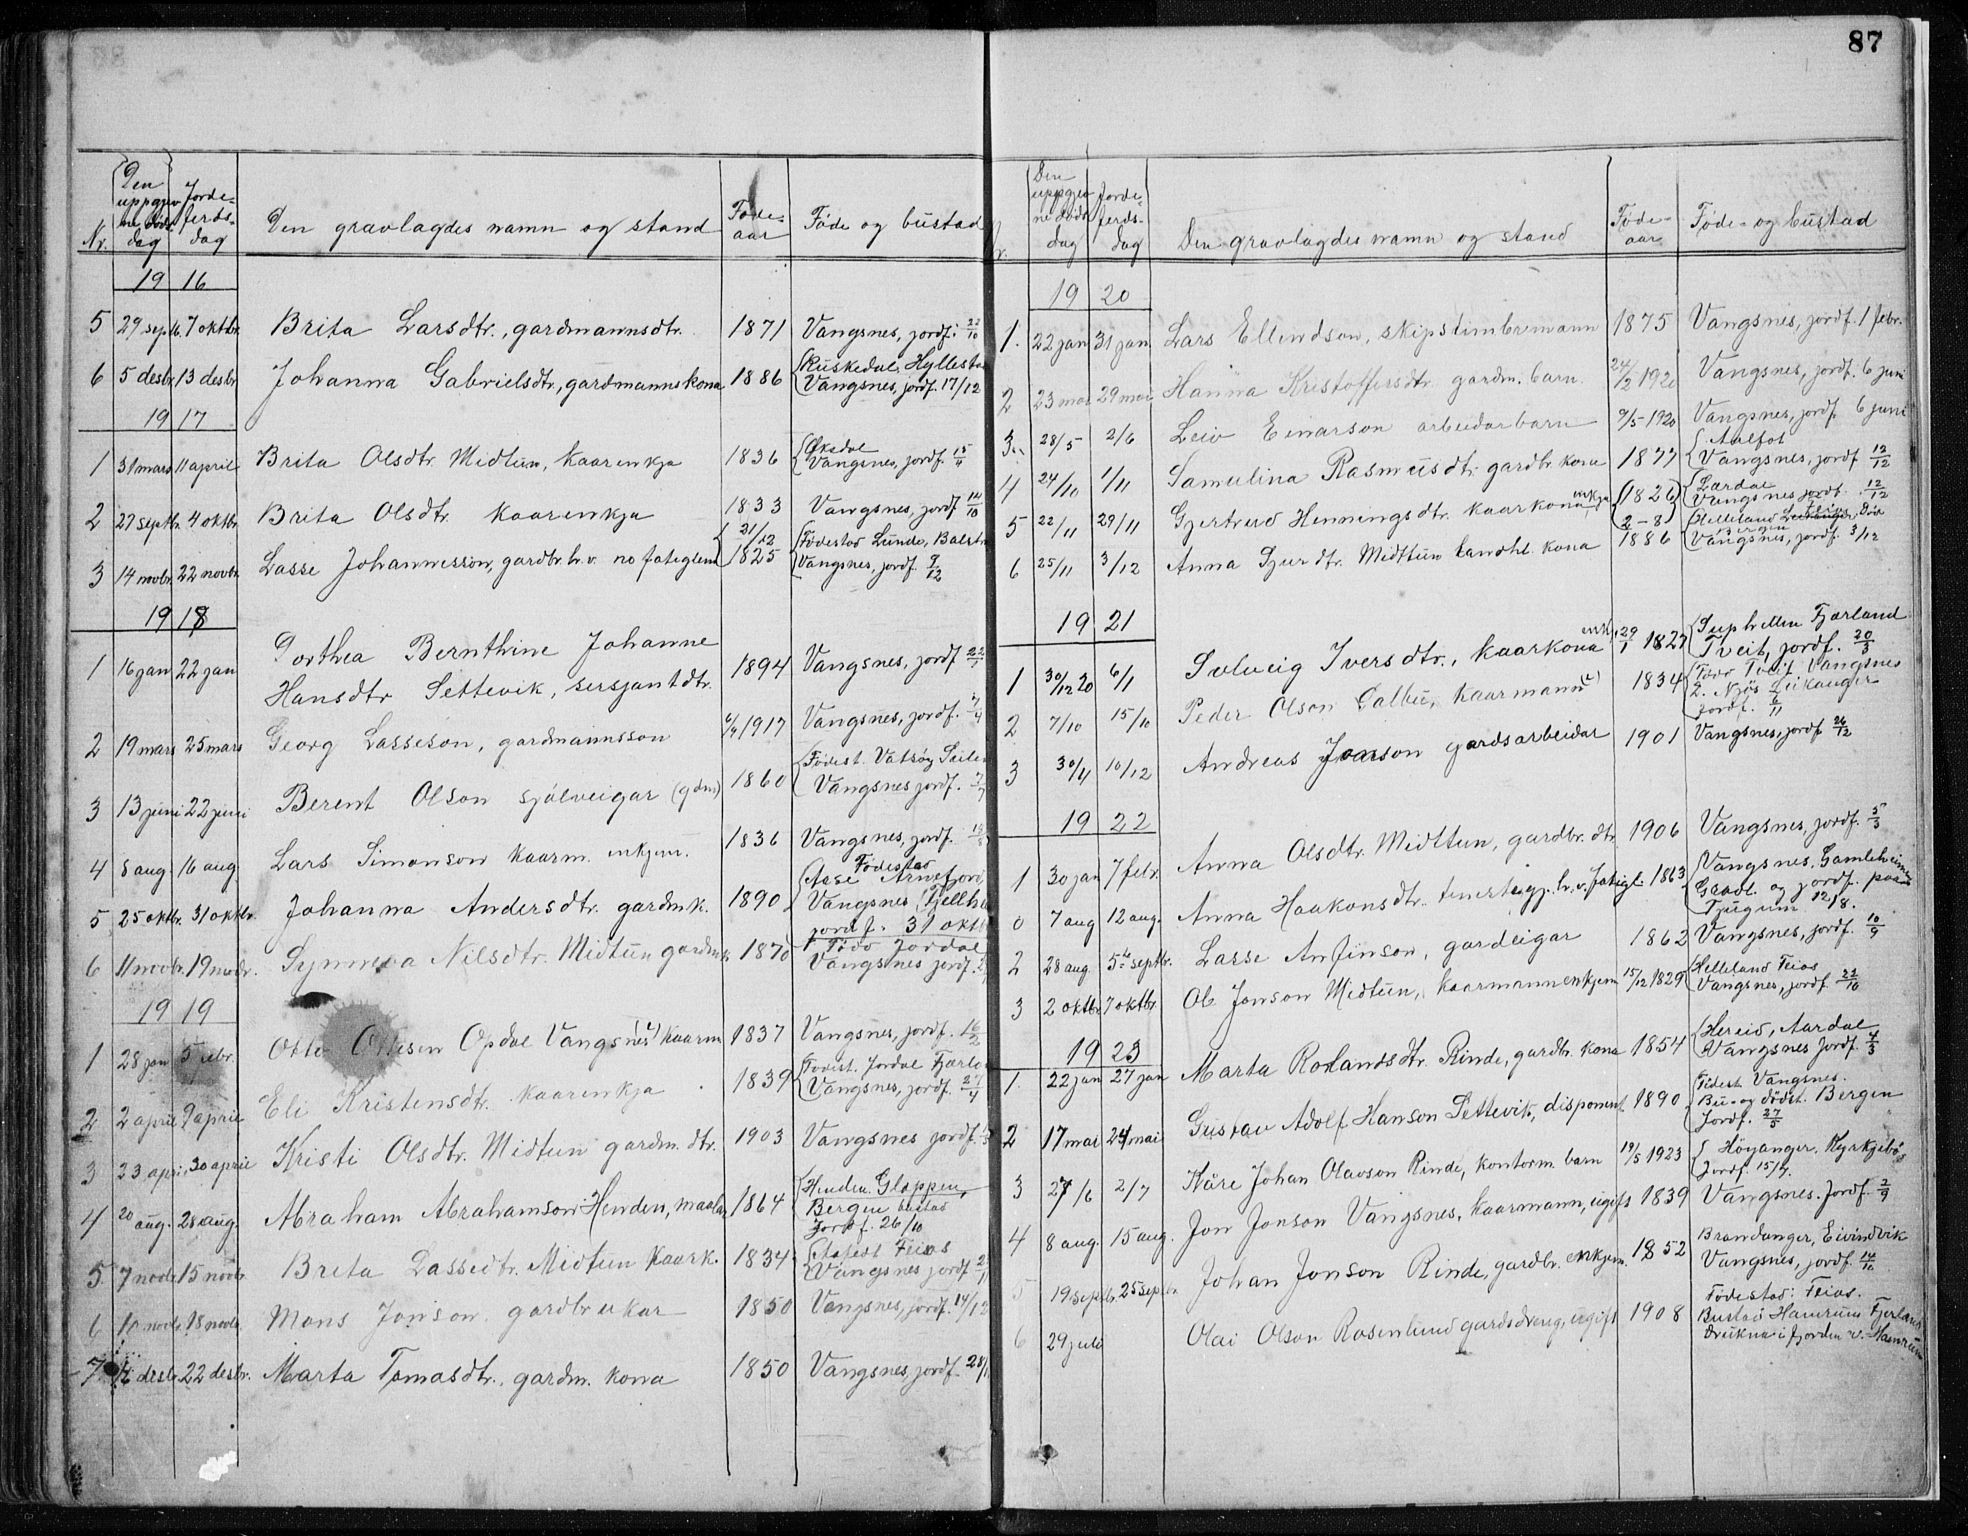 87
Nr. Den uppgjevne döds dag Jorde-ferds-dag Den gravlagdes namn og stand Föde-aar Föde og bustad
1916
5 29 septb. 7 oktbr. Brita Larsdtr., gardmannsdtr. 1871 Vangsnes, jordf. 22/10
6 5 desbr. 13 desbr. Johanna Gabrielsdtr., gardmannskona 1886 Ruskedal, Hyllestad
Vangsnes, jordf. 17/12
1917
1 31 mars 11 april Brita Olsdtr. Midtun, kaarenkja 1836 Öksdal
Vangsnes, jordf. 15/4
2 27 septbr. 4 oktbr. Brita Olsdtr. kaarenkja 1833 Vangsnes, jordf. 14/10
3 14 novbr. 22 novbr. Lasse Johannesson, gardbr. h.v. no fatiglem 21/12 1825 Födestad Lunde, Balestr.
Vangsnes, jordf. 9/12
1918
1 16 jan 22 jan Dorthea Bernthine Johanne
Hansdtr Settevik, sersjantdtr. 1894 Vangsnes, jordf.
2 19 mars 25 mars Georg Lasseson, gardmannsson 1917 Vangsnes, jordf. 7/4
3 13 juni 22 juni Berent Olson sjölveigar (gdm) 1860 Födest. Vatsöy Seilen
Vangsnes jordf. 7/7
4 8 aug 16 aug Lars Simonson kaarm. enkjem. 1836 Vangsnes, jordf.
5 25 oktbr. 31 oktbr. Johanna Andersdtr. gardmk. 1890 Födestad
Aase Arnefjord
Vangsnes (Fjellhe
jordf. 31 okt
6 11 novbr. 19 novbr. Synneva Nilsdtr. Midtun gardmk 1870 Född Jordal
Vangsnes jordf.
1919
1 28 jan 5 febr. Otto Ottesen Opdal Vangsnes kaarm 1837 Vangsnes, jordf. 16/2
2 2 april 9 april Eli Kristensdtr. kaarenkja 1839 Födest. Jordal Fjærla
Vangsnes, jordf. 27/4
3 23 april 30 april Kristi Olsdtr. Midtun gardm. dtr. 1903 Vangsnes jordf.
4 20 aug. 28 aug. Abraham Abrahamson Henden, maalar 1864 Henden, Gloppen,
Bergen bustad
Jordf. 26/10
5 7 novbr 15 novbr. Brita Lassedtr. Midtun kaark. 1834 Födest Feios
Vangsnes jordf.
6 10 novbr. 18 novbr. Mons Jonson gardbrukar 1850 Vangsnes, jordf. 14/12
7 desbr. 22 desbr. Marta Tomasdtr., gardm. kona 1850 Vangsnes, jordf. 28/
Nr. Den uppgjevne döds dag Jorde-ferds-dag Den gravlagdes namn og stand Föde-aar Föde- og bustad
1920
1. 22 jan 31 jan Lars Ellendson, skipstimbremann 1875 Vangsnes, jordf. 1 febr.
2 23 mai 29 mai Hanna Kristoffersdtr. gardm. barn. 24/2 1920 Vangsnes, jordf. 6 juni
3. 28/5 2/6 Leiv Einarson arbeidarbarn 9/5-1920 Vangsnes, jordf. 6 juni
4 24/10 1/11 Samulina Rasmusdtr. gardbr. kona 1877 Aalfot
Vangsnes, jordf 12/12
5 22/11 29/11 Gjertrud Henningsdtr. kaarkona, enkja 1826 2-8 Lærdal
Vangsnes jordf. 12/12
6 25/11 3/12 Anna Sjurdtr. Midttun landhl. kona 1886 Helleland Feios, Död Bergen
Vangsnes, jordf. 3/12
1921
1 30/12 20 6/1 Solveig Iversdtr., kaarkona enk. 29/1 1827 Suphellen Fjærland
Tveit, jordf. 20/3
2 7/10 15/10 Peder Olson Galbu, kaarmann 1834 Född Tveit Vangsnes
2. Njös Leikanger
jordf. 6/11
3 30/11 10/12 Andreas Ivarson gardsarbeidar 1901 Vangsnes, jordf 26/12
1922
1 30 jan 7 febr. Anna Olsdtr. Midttun, gardbr. dtr. 1906 Vangsnes, jordf. 5/3
0 7 aug 12 aug. Anna Haakonsdtr. tenestegj. h.v. fatigl. 1863 Vangsnes. Gamleheimen
Gravl. og jordf. paa
Tjugum 12/8.
2 28 aug. 5te septbr. Lasse Anfinson, gardeigar 1862 Vangsnes, jordf. 10/9
3 2 oktbr 7 oktbr Ol. Jonson Midtun, kaarmann enkjem 15/12 1829 Helleland Feios
Vangsnes, jordf 22/10
1923
1. 22 jan 27 jan Marta Rolandsdtr. Rinde, gardbr. kona 1854 Hereid, Aardal
Vangsnes Jordf. 4/3
2 17 mai 24 mai Gustav Adolf Hanson Settevik, disponent 1890 Födest. Vangsnes.
Bu- og dödst. Bergen
Jordf. 27/5
3 27/6 2/7 Kåre Johan Olavson Rinde, kontorm. barn 19/5 1923 Höyanger, Kyrkjebö
Jordf. 15/7.
4 8 aug. 15 aug. Jon Jonson Vangsnes, kaarmann, ugift 1839 Vangsnes. Jordf. 2/9
5 19 septbr. 25 septbr. Johan Jonson Rinde, gardbr. enkjem. 1852 Brandanger, Eivindvik
Vangsnes, jordf. 14/10
6 29 juli Olai Olson Rosenlund gardsdreng, ugift 1908 Födestad: Feios.
Bustad Hamrum Fjærland
Drukna i fjorden v. Hamrum